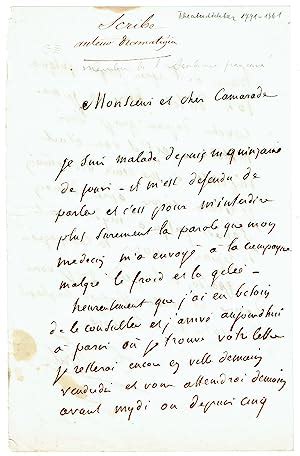 Scribe
auteur dramatique
1791-1861
Monsieur et cher Camarade
Je suis malade depuis une quinzaine
de jours - il m'est défendu de
parler et c'est pour m'interdire
plus surement la parole que mon
medecin m'a envoyé à la campagne
malgré le froid et la gelée -
heureusement que j'ai eu besoin
de le consulter et j'arrive aujourd'hui
à paris où je trouve votre lettre
je resterai encore en ville demain
vendredi et vous attendrai demain
avant mydi ou depuis cinq